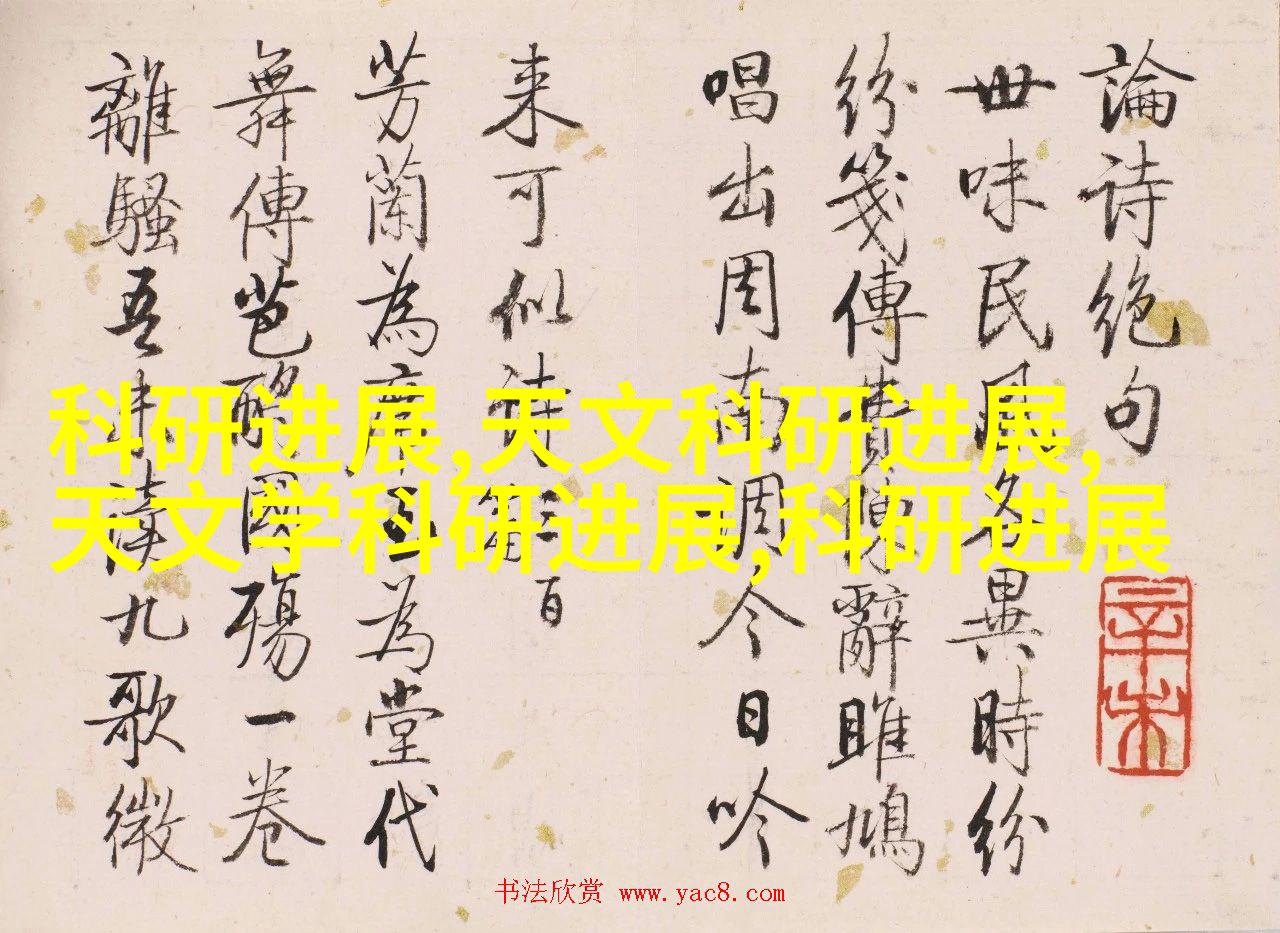 論诗绝句
世味民風各異時紛
紛箋傳費辭雎鳩
唱出周南調今日吟
来可似诗三百
芳蘭為為堂代
舞傳芭醉國殤一卷
離騷吾讀九歌微
科研进展,天文科研进展,
天文学科研进展,科研进展
辛未
书法欣赏 www.yac8.com